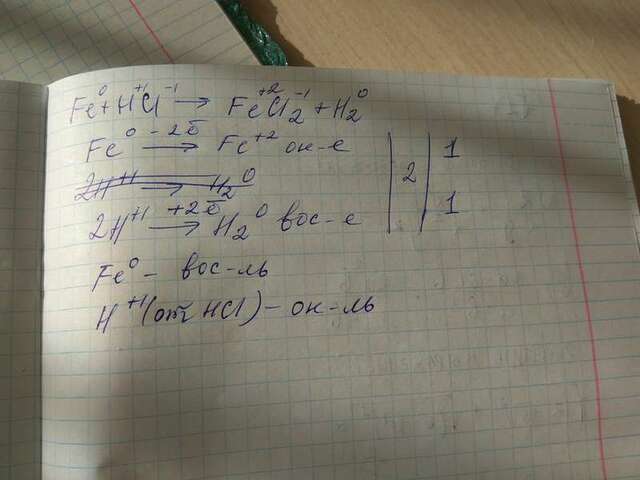 Fe⁰ + H⁺¹Cl⁻¹ → Fe⁺²Cl₂⁻¹ + H₂⁰
Fe⁰ −2ē → Fe⁺² ок-е | 2 | 1
2H⁺¹ → H₂⁰
2H⁺¹ +2ē → H₂⁰ вос-е | 1
Fe⁰ – вос-ль
H⁺¹ (от HCl) – ок-ль